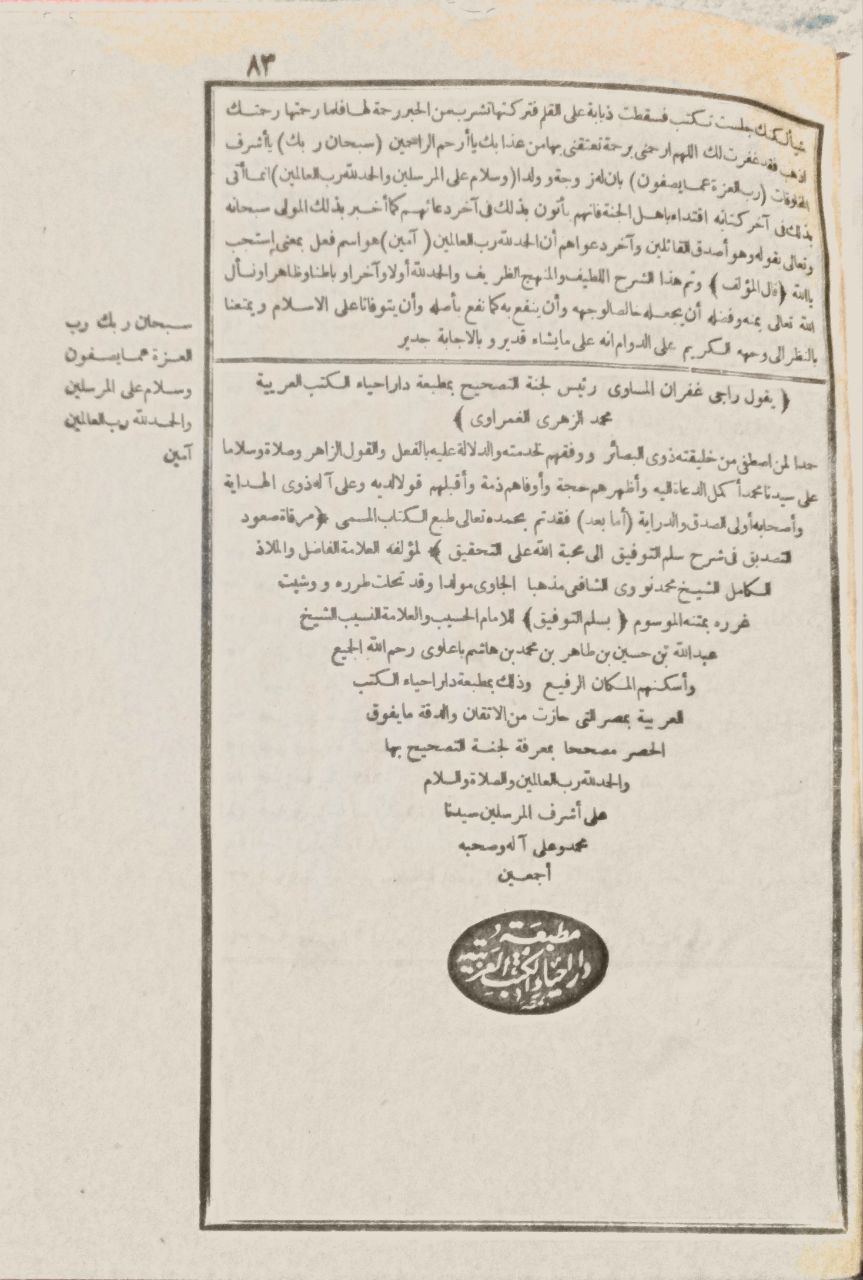 ٨٣
شيأ لكنك جلست تكتب فسقطت ذبابة على القلم فتركتها تشرب من الحبر رحمة لها فلما رحمتها رحمتك
اذهب فقد غفرت لك اللهم ارحمنى برحمة تعتقنى بها من عذابك يا أرحم الراحمين (سبحان ربك) يا أشرف
المخلوقات (رب العزة عما يصفون) بان له زوجة وولدا (وسلام على المرسلين والحمد لله رب العالمين) انما أتى
بذلك فى آخر كتابه اقتداء باهل الجنة فانهم يأتون بذلك فى آخر دعائهم كما أخبر بذلك المولى سبحانه
وتعالى بقوله وهو أصدق القائلين وآخر دعواهم أن الحمد لله رب العالمين (آمين) هو اسم فعل بمعنى إستجب
يا الله ﴿قال المؤلف﴾ وتم هذا الشرح اللطيف والمنهج الظريف والحمد لله أولا وآخرا وباطنا وظاهرا ونسأل
الله تعالى بمنه وفضله أن يجعله خالصا لوجهه وأن ينفع به كما نفع بأصله وأن يتوفانا على الاسلام ويمتعنا
بالنظر الى وجهه الكريم على الدوام انه على ما يشاء قدير وبالاجابة جدير
سبحان ربك رب
العزة عما يصفون
وسلام على المرسلين
والحمد لله رب العالمين
آمين
﴿يقول راجى غفران المساوى رئيس لجنة التصحيح بمطبعة دار احياء الكتب العربية
محمد الزهرى الغمراوى﴾
حمدا لمن اصطفى من خليقته ذوى البصائر ووفقهم لخدمته والدلالة عليه بالفعل والقول الزاهر وصلاة وسلاما
على سيدنا محمد أكمل الدعاة اليه وأظهرهم حجة وأوفاهم ذمة وأقبلهم قولا لديه وعلى آله ذوى الهداية
وأصحابه أولى الصدق والدراية (أما بعد) فقد تم بحمده تعالى طبع الكتاب المسمى ﴿مرقاة صعود
التصديق فى شرح سلم التوفيق الى محبة الله على التحقيق﴾ لمؤلفه العلامة الفاضل والملاذ
الكامل الشيخ محمد نووى الشافعى مذهبا الجاوى مولدا وقد تحلت طرره ووشيت
غرره بمتنه الموسوم ﴿بسلم التوفيق﴾ للامام الحسيب والعلامة النسيب الشيخ
عبد الله بن حسين بن طاهر بن محمد بن هاشم باعلوى رحم الله الجميع
وأسكنهم المكان الرفيع وذلك بمطبعة دار احياء الكتب
العربية بمصر التى حازت من الاتقان والدقة ما يفوق
الحصر مصححا بمعرفة لجنة التصحيح بها
والحمد لله رب العالمين والصلاة والسلام
على أشرف المرسلين سيدنا
محمد وعلى آله وصحبه
أجمعين
مطبعة
دار احياء الكتب العربية
بمصر